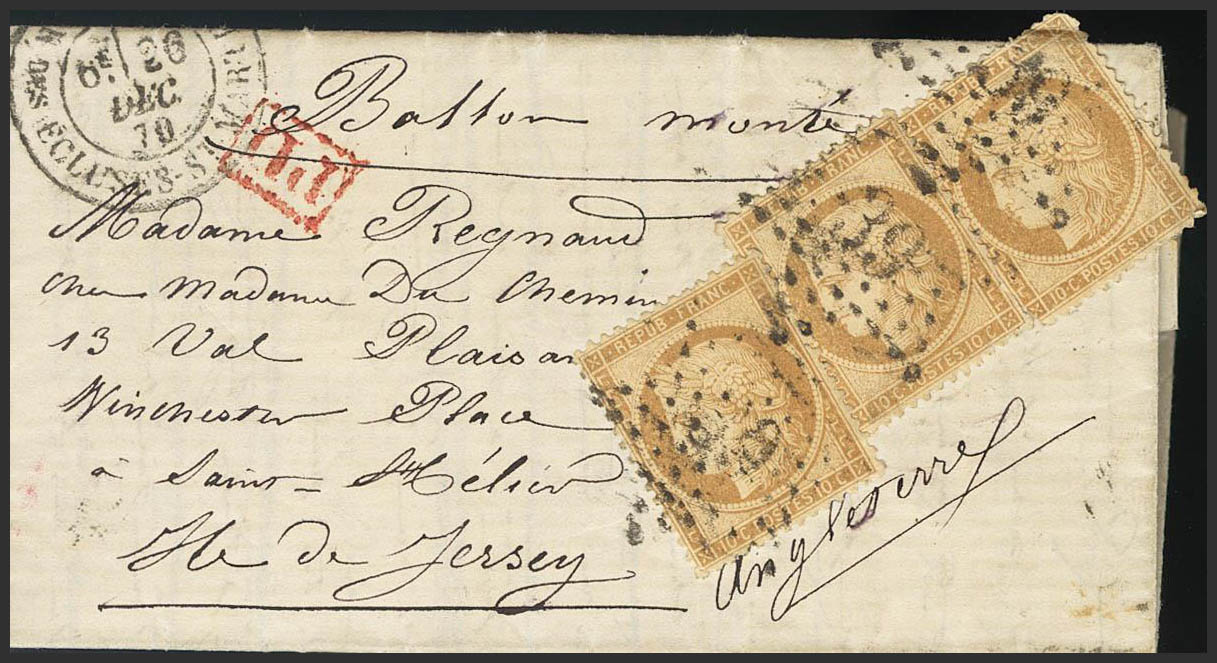 6E 26
DEC.
70
ECLUSES-ST MARTIN
PD
Ballon monté
Madame Regnaud
chez Madame Du Chemin
13 Val Plaisan
Winchester Place
à Saint-Hélier
Ile de Jersey
Angleterre
REPUB·FRANC·
10·C·POSTES·10·C·
REPUB·FRANC·
10·C·POSTES·10·C·
REPUB·FRANC·
10·C·POSTES·10·C·